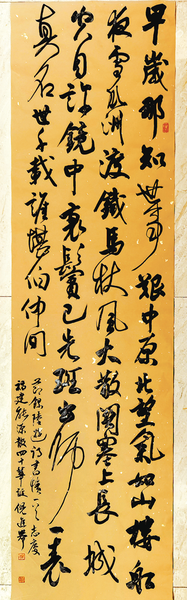 早歲那知世事艱中原北望氣如山樓船
夜雪瓜洲渡鐵馬秋風大散關塞上長城
空自許鏡中衰鬢已先斑出師一表
真名世千載誰堪伯仲間
節錄陸游詩書憤一首志慶
福建能源四十華誕倪進